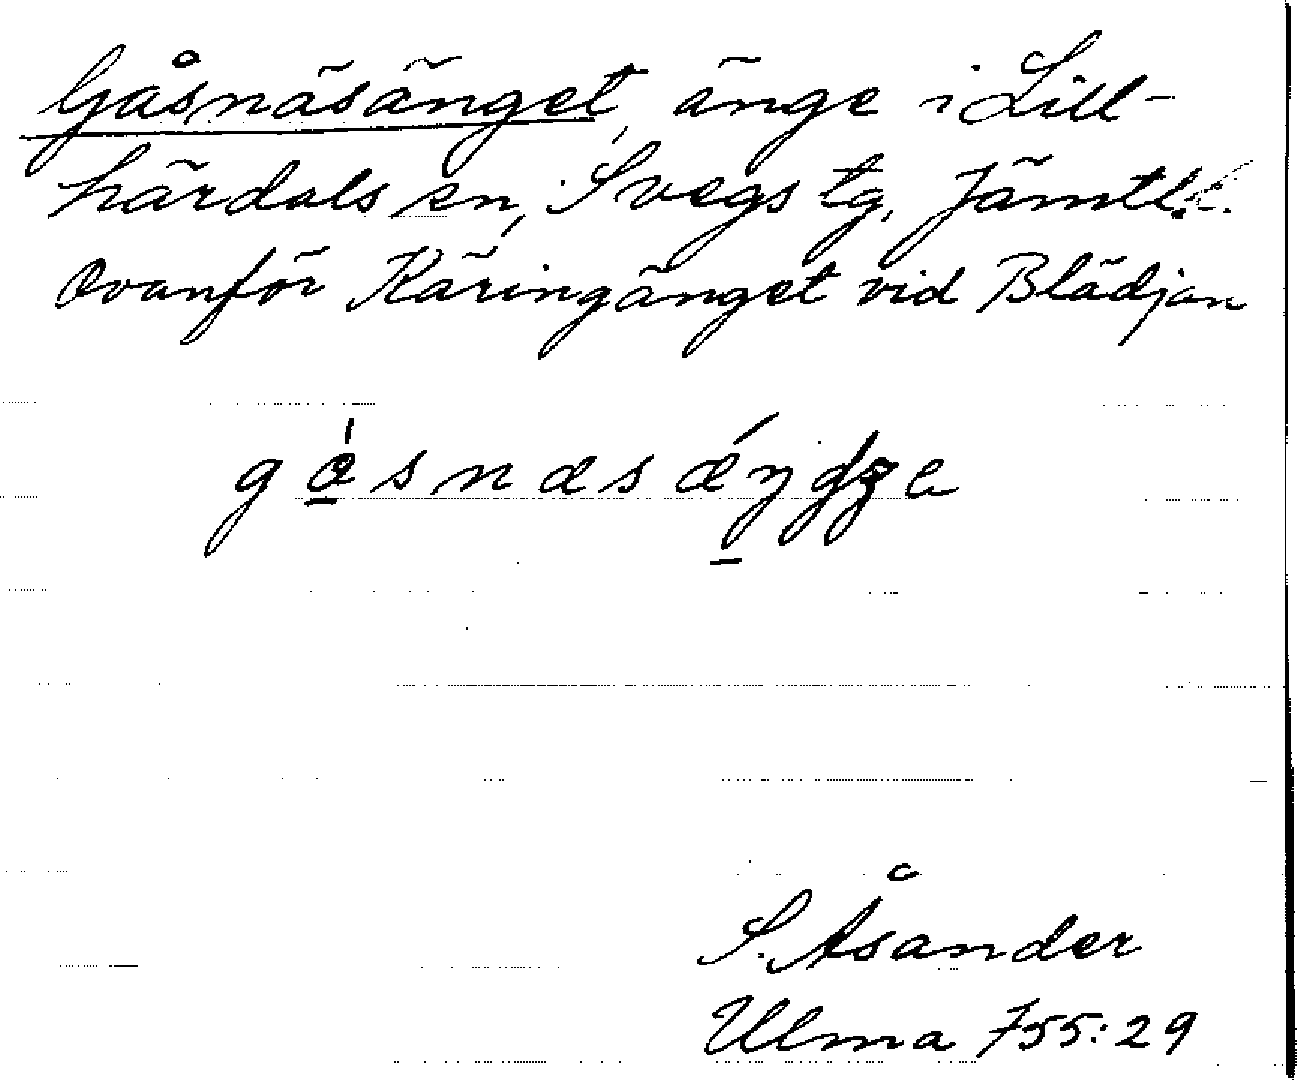 Gåsnäsänget, änge i Lill-
härdals sn, Svegs tg, Jämtl.
Ovanför Käringänget vid Blädjan
S. Åsander
Ulma 755:29